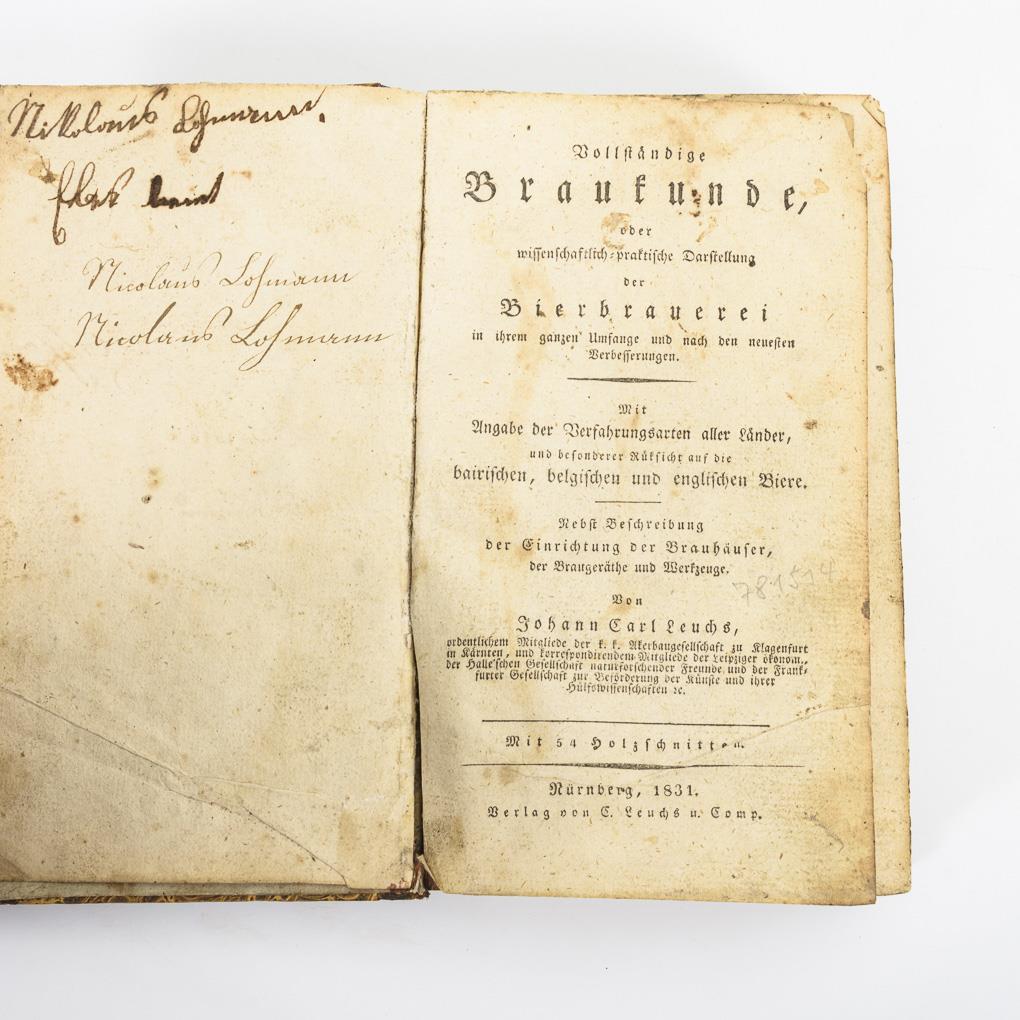 Nikolaus Lohmann.
Nicolaus Lohmann
Nicolaus Lohmann
Vollständige
Braukunde,
oder
wissenschaftlich-praktische Darstellung
der
Bierbrauerei
in ihrem ganzen Umfange und nach den neuesten
Verbesserungen.
Mit
Angabe der Verfahrungsarten aller Länder,
und besonderer Rüksicht auf die
bairischen, belgischen und englischen Biere.
Nebst Beschreibung
der Einrichtung der Brauhäuser,
der Braugeräthe und Werkzeuge.
781514
Von
Johann Carl Leuchs,
ordentlichem Mitgliede der k. k. Akerbaugesellschaft zu Klagenfurt
in Kärnten, und korrespondirendem Mitgliede der Leipziger ökonom.,
der Halle'schen Gesellschaft naturforschender Freunde und der Frank-
furter Gesellschaft zur Beförderung der Künste und ihrer
Hülfswissenschaften ꝛc.
Mit 54 Holzschnitten.
Nürnberg, 1831.
Verlag von C. Leuchs u. Comp.